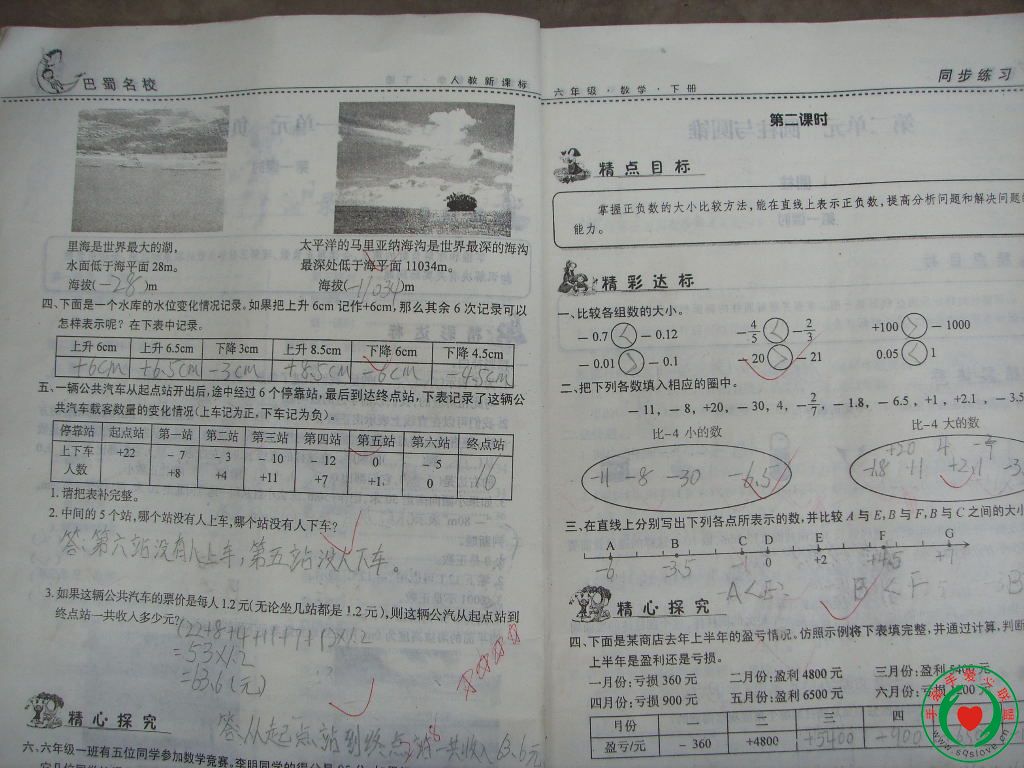 巴蜀名校
人教新课标
里海是世界最大的湖,
水面低于海平面28m。
海拔(-28)m
太平洋的马里亚纳海沟是世界最深的海沟
最深处低于海平面11034m。
海拔(-11034)m
四、下面是一个水库的水位变化情况记录。如果把上升6cm记作+6cm,那么其余6次记录可以
怎样表示呢?在下表中记录。
上升6cm 上升6.5cm 下降3cm 上升8.5cm 下降6cm 下降4.5cm
+6cm +6.5cm -3cm +8.5cm -6cm -4.5cm
五、一辆公共汽车从起点站开出后,途中经过6个停靠站,最后到达终点站,下表记录了这辆公
共汽车载客数量的变化情况(上车记为正,下车记为负)。
停靠站 起点站 第一站 第二站 第三站 第四站 第五站 第六站 终点站
上下车 +22 -7 -3 -10 -12 0 -5 16
人数 +8 +4 +11 +7 +1 0
1.请把表补完整。
2.中间的5个站,哪个站没有人上车,哪个站没有人下车?
答:第六站没有人上车,第五站没人下车。
3.如果这辆公共汽车的票价是每人1.2元(无论坐几站都是1.2元),则这辆公汽从起点站到
终点站一共收入多少元?
(22+8+4+11+7+1)×1.2
=53×1.2
=63.6(元)
答:从起点站到终点站一共收入63.6元
精心探究
六、六年级一班有五位同学参加数学竞赛。李明同学的得分是
六年级·数学·下册
同步练习
第二课时
精点目标
掌握正负数的大小比较方法,能在直线上表示正负数,提高分析问题和解决问题的
能力。
精彩达标
一、比较各组数的大小。
-0.7 < -0.12 -4/5 < -2/3 +100 > -1000
-0.01 > -0.1 -20 > -21 0.05 < 1
二、把下列各数填入相应的圈中。
-11,-8,+20,-30,4,-2/7,-1.8,-6.5,+1,+2.1,-3.5
比-4小的数 比-4大的数
-11 -8 -30 -6.5
+20 4
-1.8 +1 +2.1
三、在直线上分别写出下列各点所表示的数,并比较A与E,B与F,B与C之间的大小
A B C D E F G
-6 -3.5 -1 0 +2 +4.5 +7
A<E B<F
精心探究
四、下面是某商店去年上半年的盈亏情况。仿照示例将下表填完整,并通过计算,判断
上半年是盈利还是亏损。
一月份:亏损360元 二月份:盈利4800元 三月份:盈利5400元
四月份:亏损900元 五月份:盈利6500元 六月份:亏损
月份 一 二 三 四
盈亏/元 -360 +4800 +5400
手拉手爱兴联盟
www.sqslove.cn